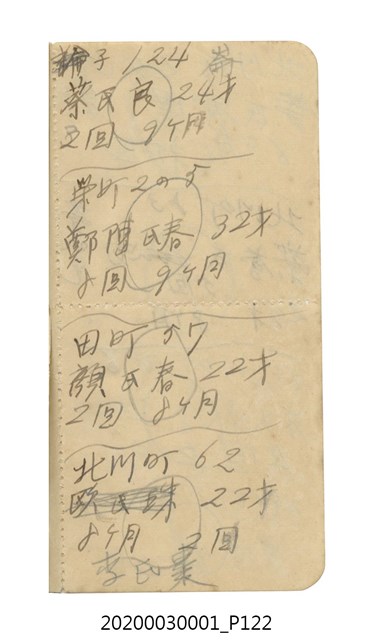 子 124
蔡氏良 24才
2回 9ケ月
栄町2の5
鄭陳氏春 32才
8回 9ケ月
田町 57
顔氏春 22才
2回 8ケ月
北川町 62
欧氏珠 22才
8ケ月 2回
李氏葉
20200030001_P122